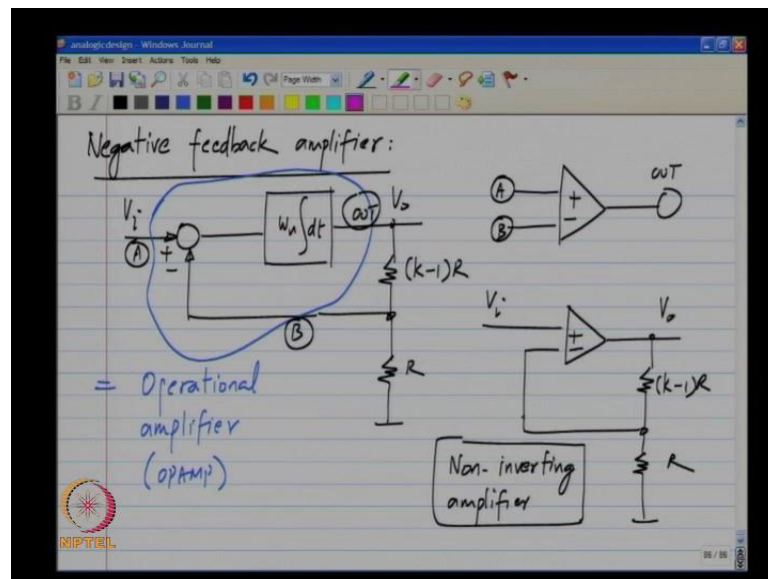 analogicdesign - Windows Journal
File Edit View Insert Actions Tools Help
Page Width
B I
Negative feedback amplifier:
Vi
A
+
-
Wu ∫dt
OUT
Vo
(k-1)R
B
R
= Operational
amplifier
(OPAMP)
A
B
+
-
OUT
Vi
+
-
Vo
(k-1)R
R
Non-inverting
amplifier
NPTEL
86 / 86